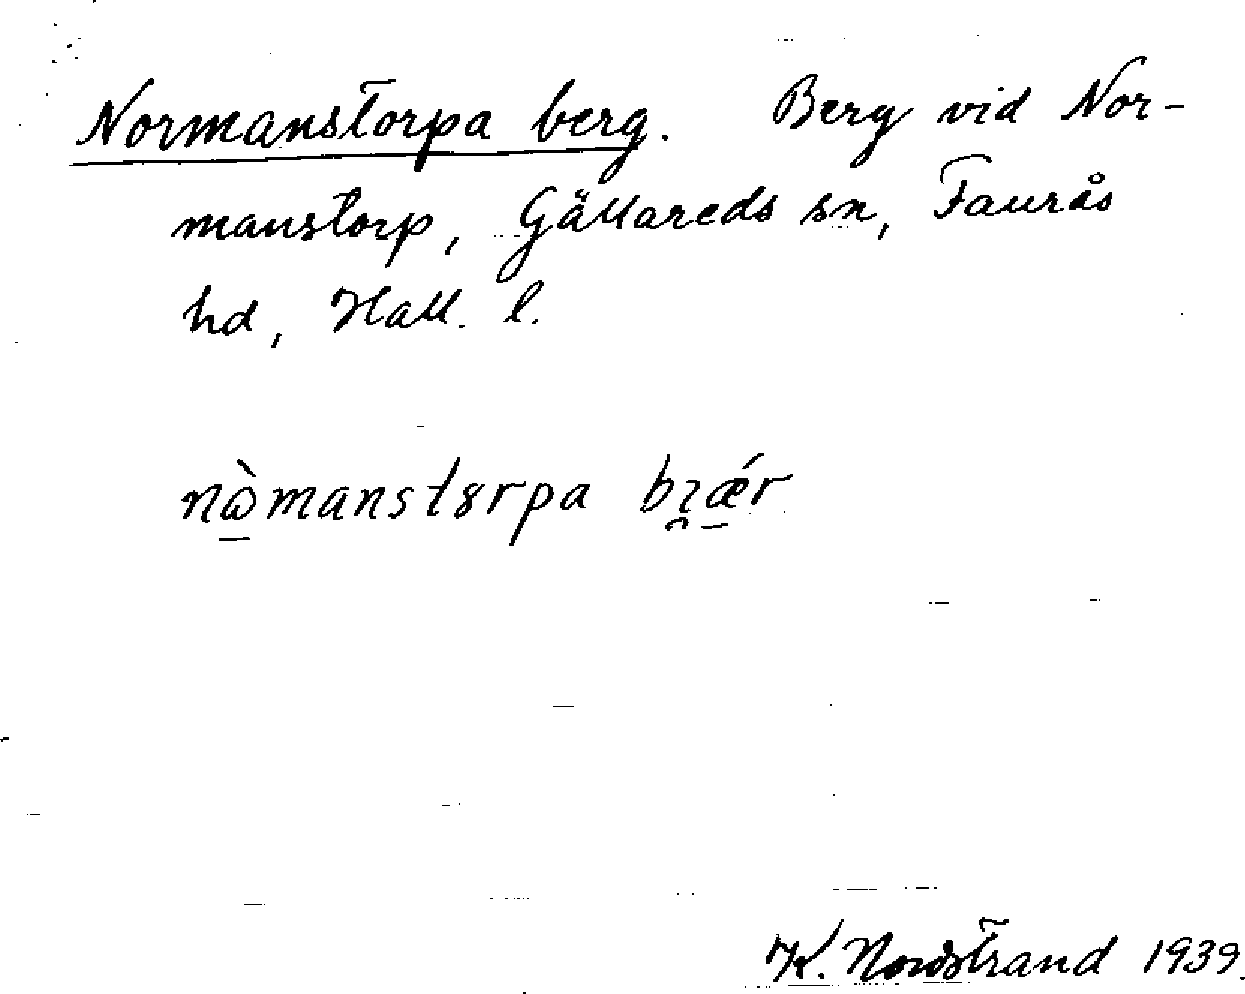 Normanstorpa berg. Berg vid Nor-
manstorp, Gällareds sn, Faurås
hd, Hall. l.
nὼ̲manstȣrpa bɿ̯ǽ̲r
K. Nordstrand 1939.